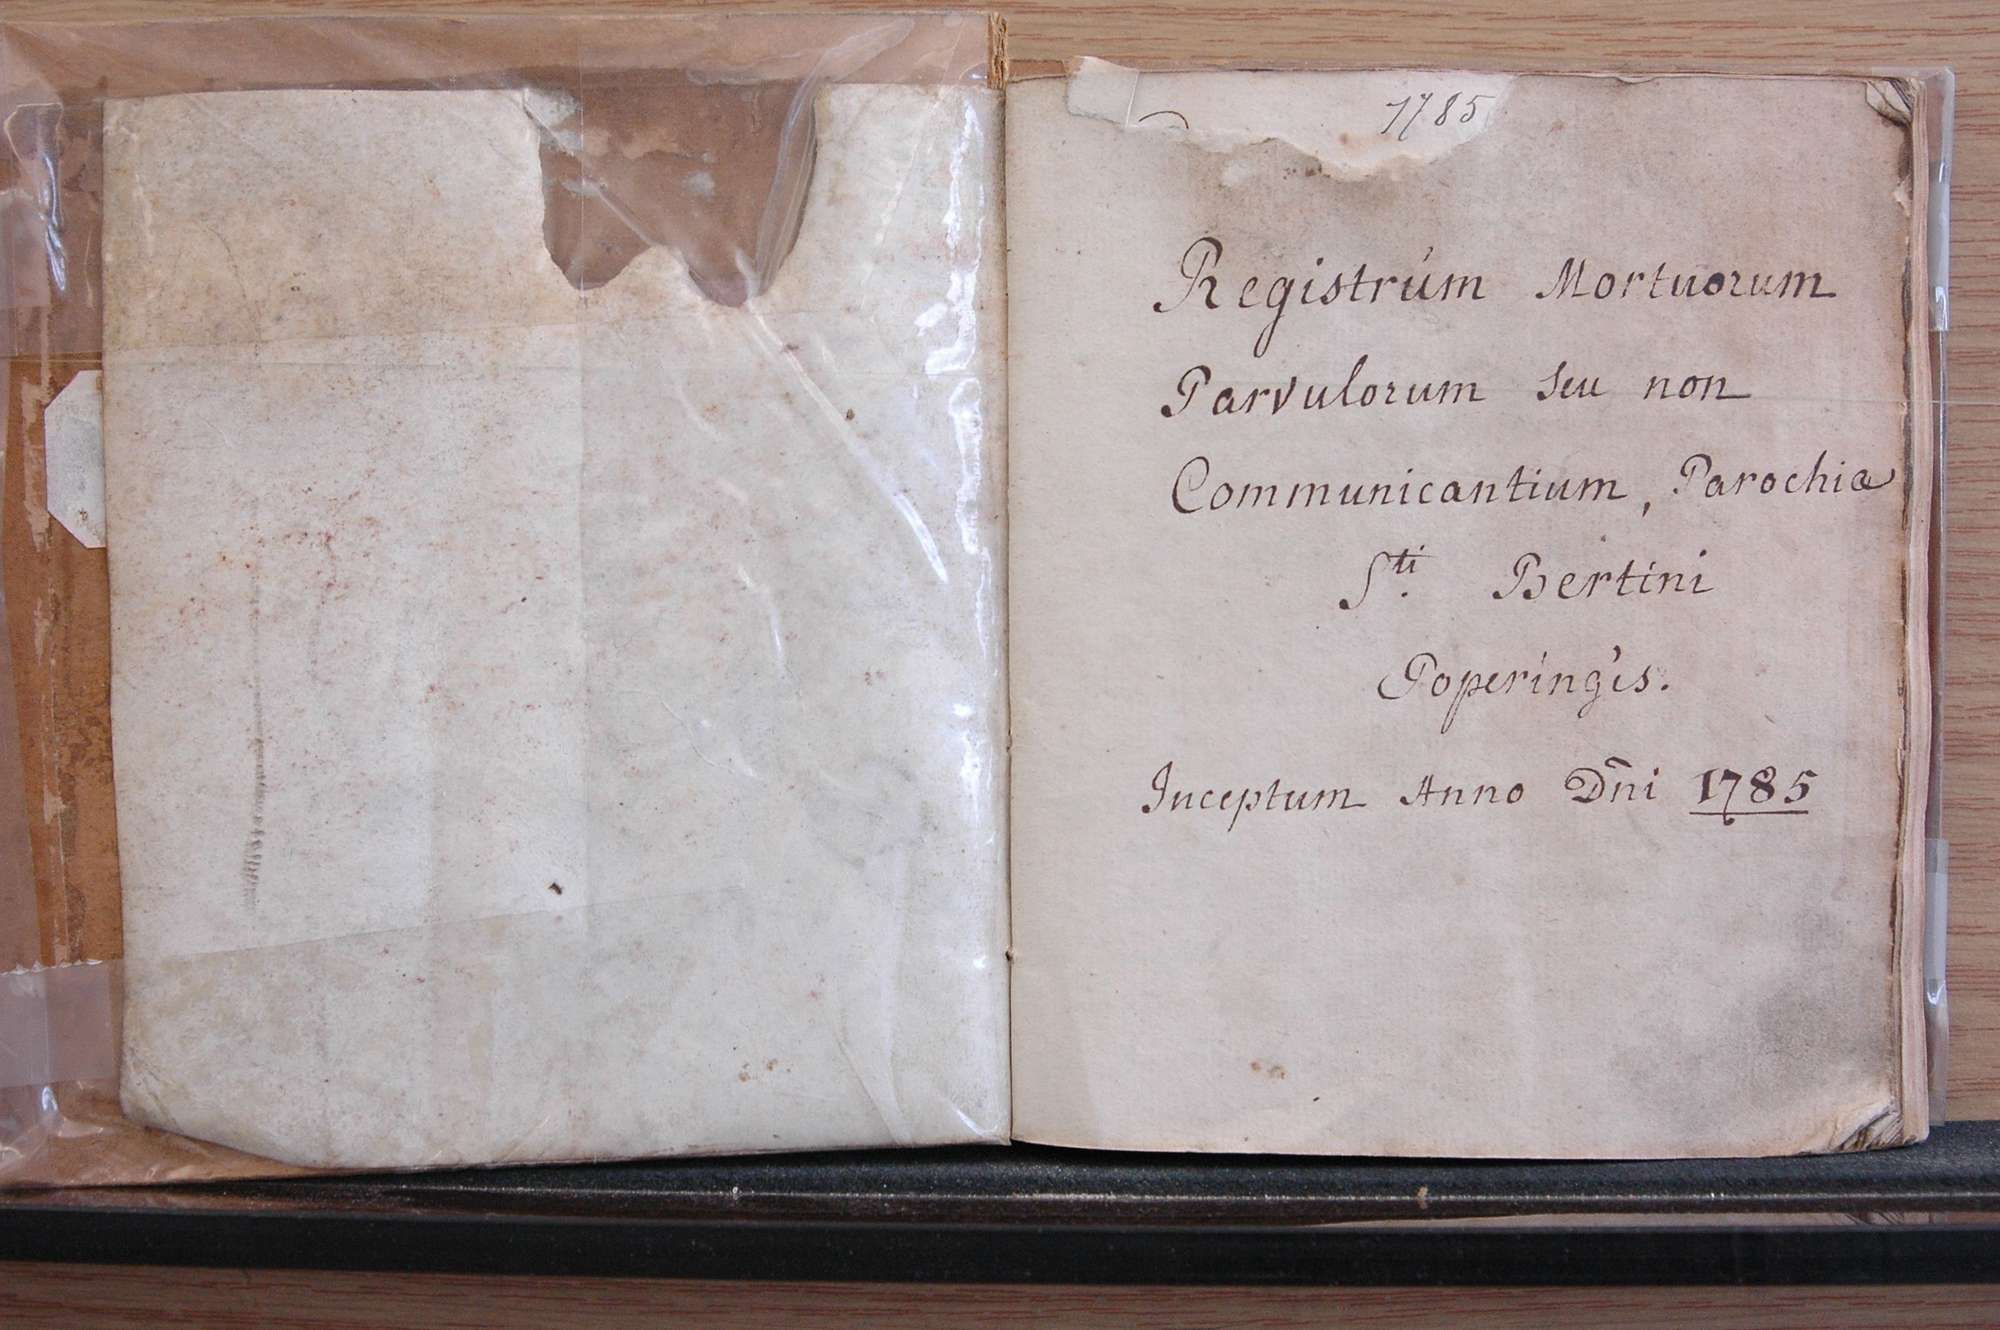 1785
Registrum Mortuorum
Parvulorum seu non
Communicantium, Parochiæ
Sti. Bertini
Poperingis.
Inceptum Anno Dñi 1785